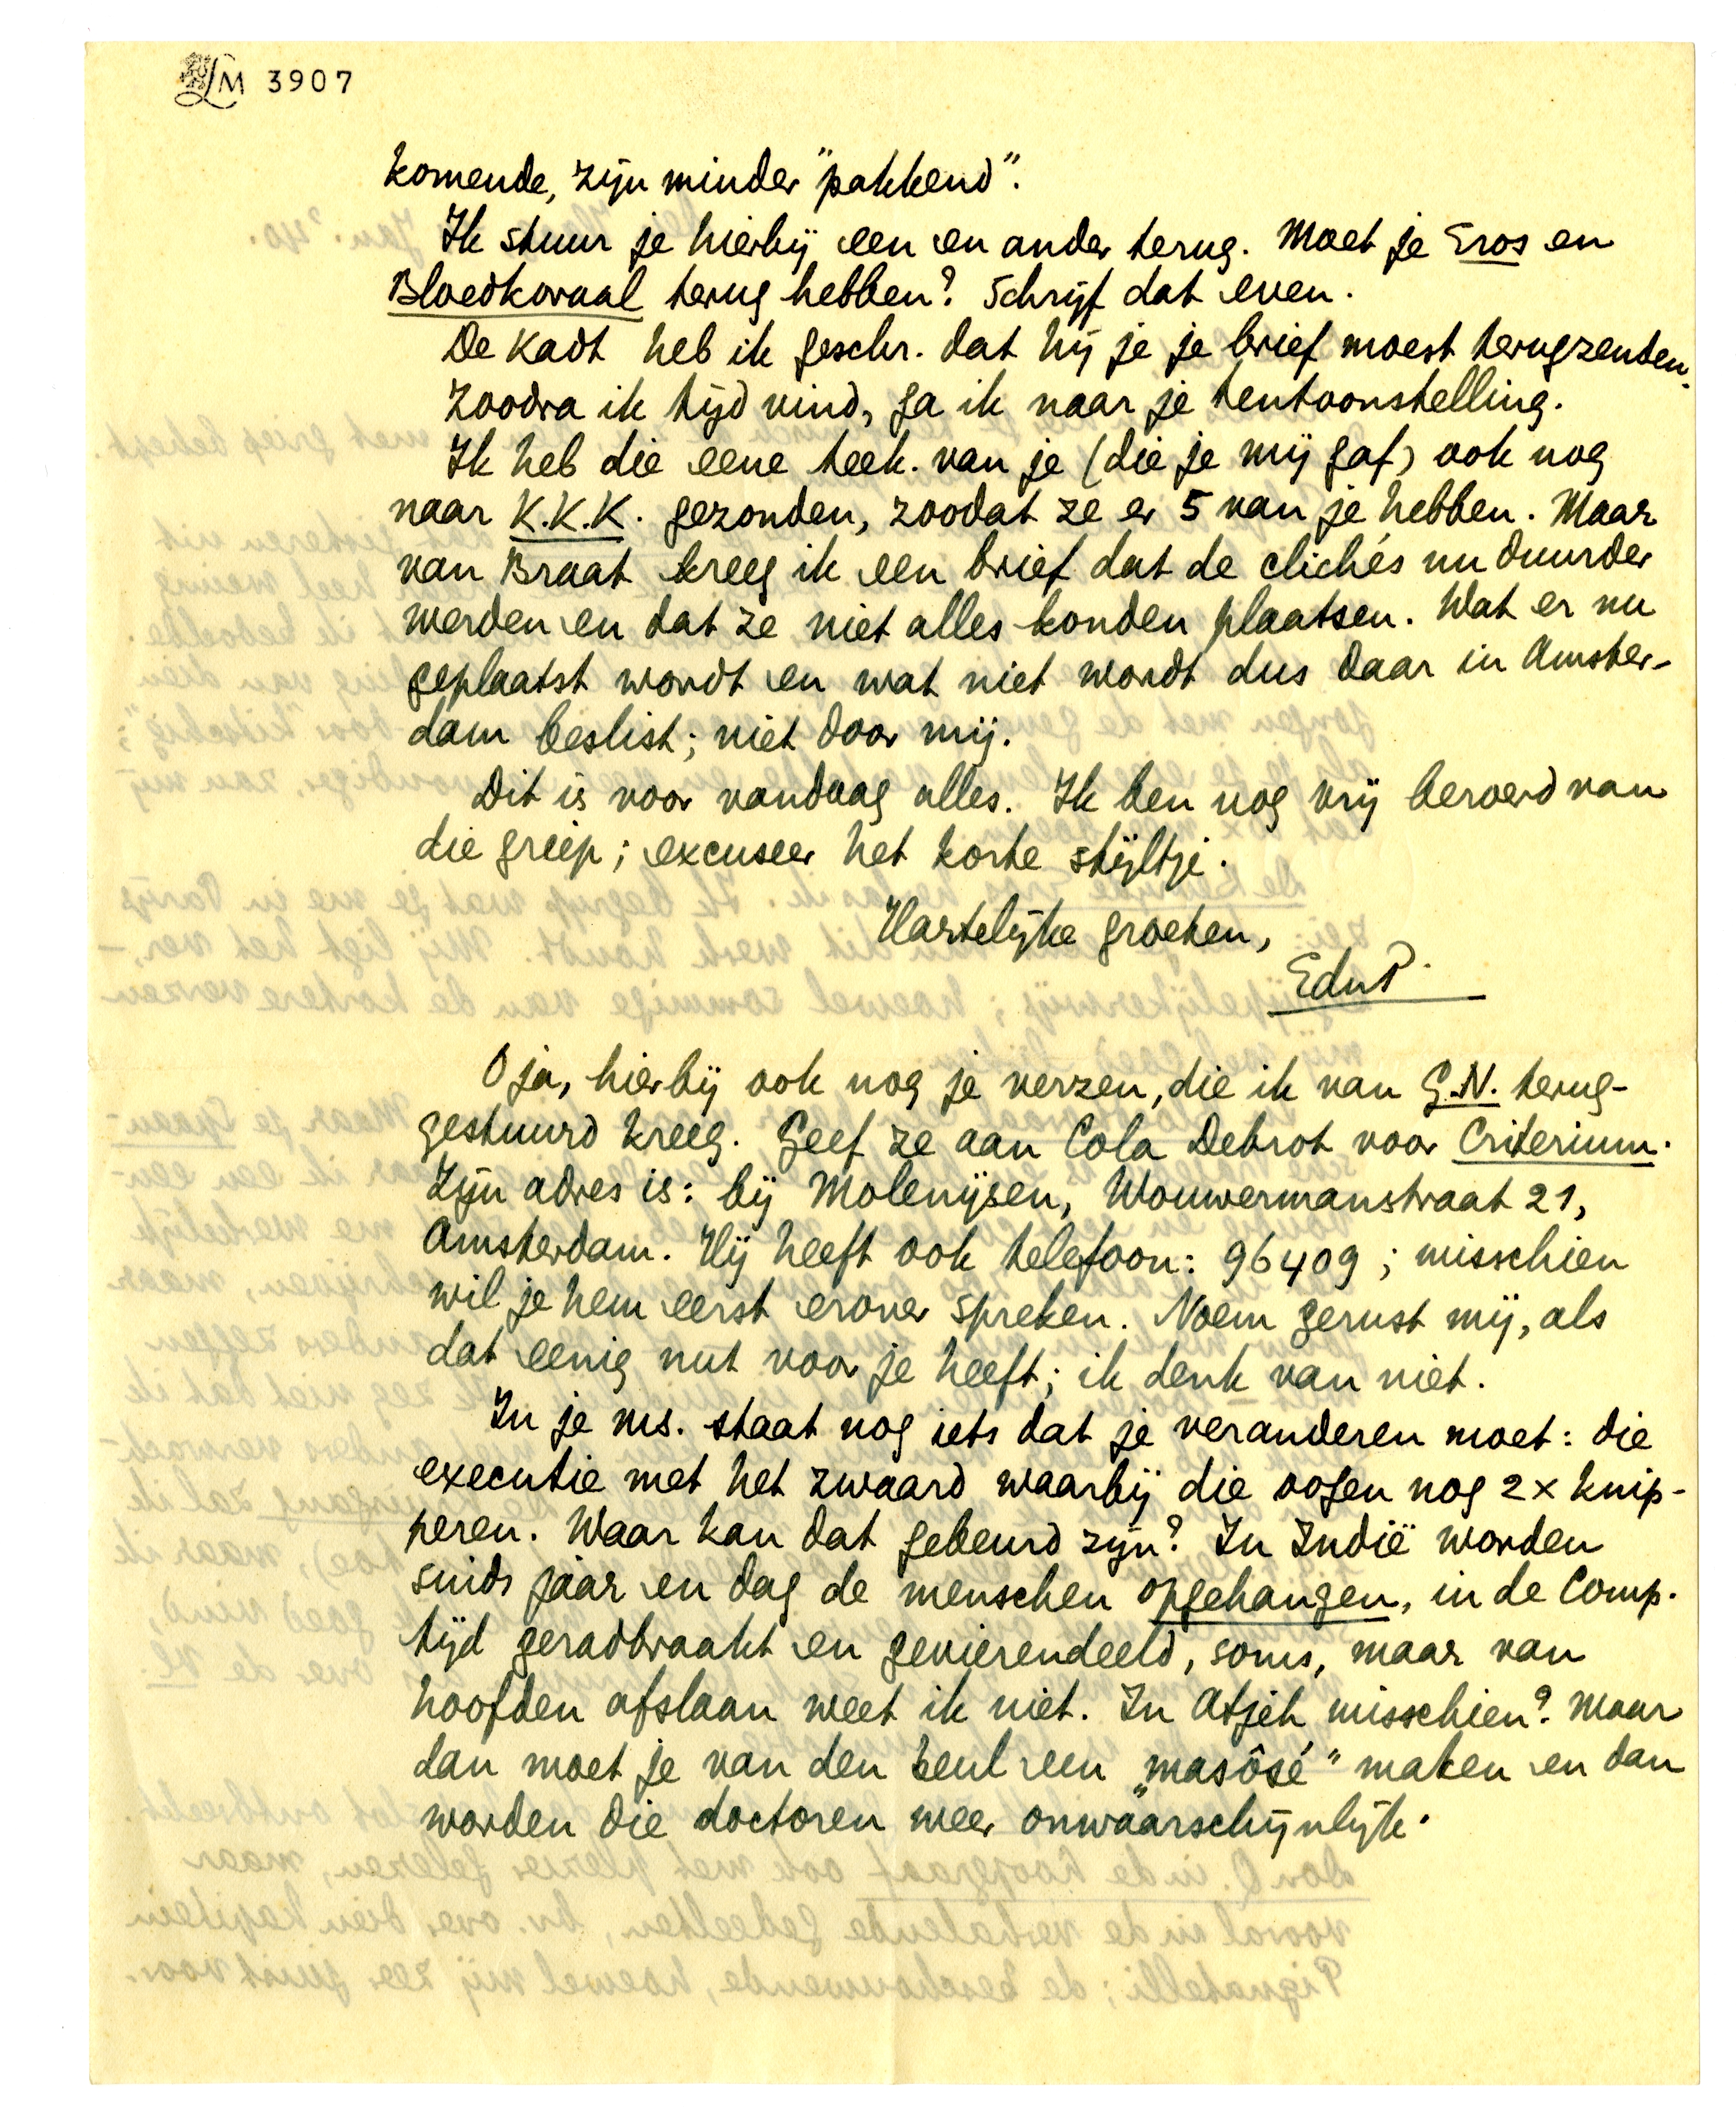 LM 3907
komende, zijn minder "pakkend".
Ik stuur je hierbij een en ander terug. Moet je Eros en
Bloedkoraal terug hebben? Schrijf dat even.
De Kadt heb ik geschr. dat hij je je brief moest terugzenden.
Zoodra ik tijd vind, ga ik naar je tentoonstelling.
Ik heb die eene teek. van je (die je mij gaf) ook nog
naar K.K.K. gezonden, zoodat ze er 5 van je hebben. Maar
van Braat kreeg ik een brief dat de clichés nu duurder
werden en dat ze niet alles konden plaatsen. Wat er nu
geplaatst wordt en wat niet wordt dus daar in Amster-
dam beslist; niet door mij.
Dit is voor vandaag alles. Ik ben nog vrij beroerd van
die griep; excuseer het korte stijltje.
Hartelijke groeten,
EduP.
O ja, hierbij ook nog je verzen, die ik van G.N. terug-
gestuurd kreeg. Geef ze aan Cola Debrot voor Criterium.
Zijn adres is: bij Molenijsen, Wouwermanstraat 21,
Amsterdam. Hij heeft ook telefoon: 96409; misschien
wil je hem eerst erover spreken. Noem gerust mij, als
dat eenig nut voor je heeft; ik denk van niet.
In je ms. staat nog iets dat je veranderen moet: die
executie met het zwaard waarbij die oogen nog 2x knip-
peren. Waar kan dat gebeurd zijn? In Indië worden
sinds jaar en dag de menschen opgehangen, in de Comp.
tijd geradbraakt en gevierendeeld, soms, maar van
hoofden afslaan weet ik niet. In Atjeh misschien? Maar
dan moet je van den beul een „masôsé" maken en dan
worden die doctoren weer onwaarschijnlijk.